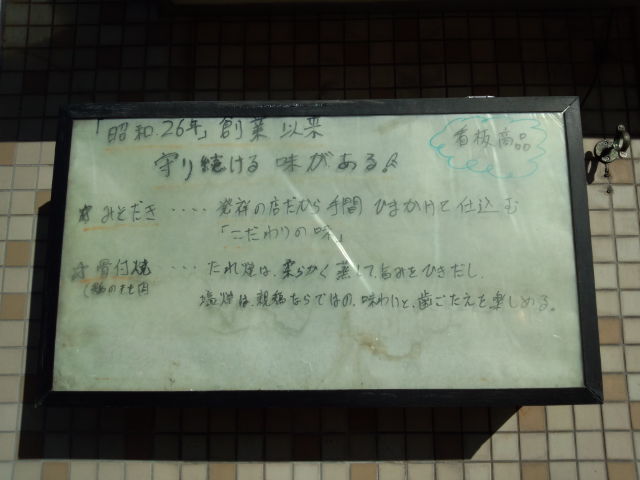 「昭和26年」創業以来
看板商品
守り続ける 味がある!!
☆ みそだき ‥‥ 発祥の店だから手間ひまかけて仕込む
「こだわりの味」
☆ 骨付焼 ‥‥ たれ焼は、柔らかく蒸して、旨みをひきだし、
(鶏のもも肉
塩焼は、親鶏ならではの、味わいと、歯ごたえを楽しめる。